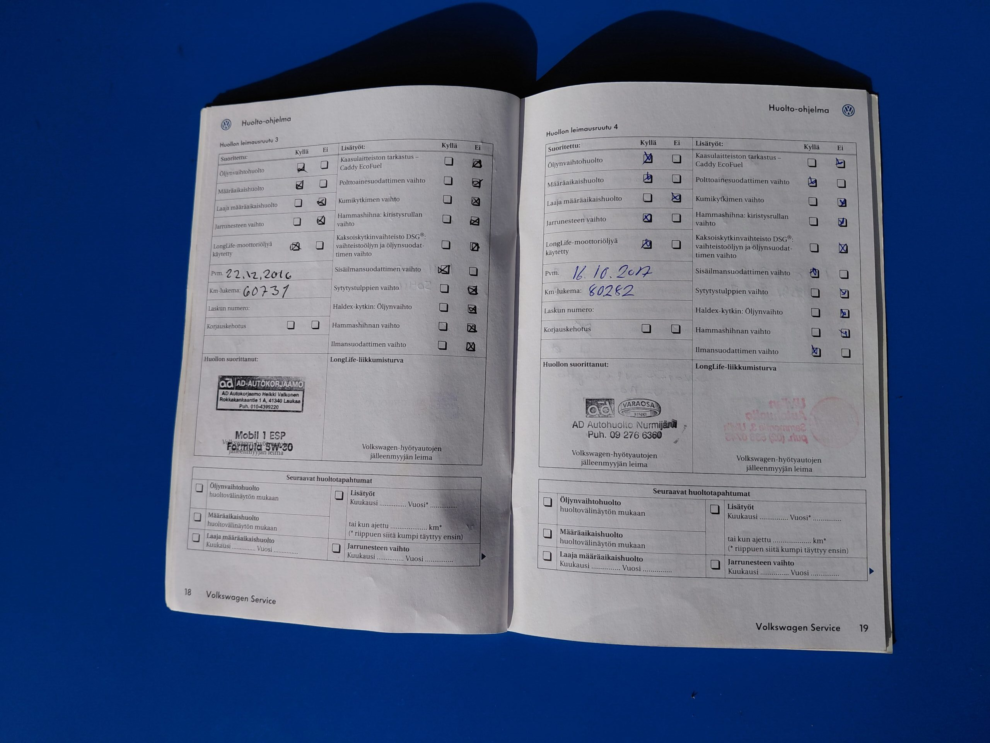 Huolto-ohjelma
Huollon leimausruutu 3
Suoritettu: Kyllä Ei Lisätyöt: Kyllä Ei
Öljynvaihtohuolto
Kaasulaitteiston tarkastus -
Caddy EcoFuel
Määräaikaishuolto
Polttoainesuodattimen vaihto
Laaja määräaikaishuolto
Kumikytkimen vaihto
Jarrunesteen vaihto
Hammashihna: kiristysrullan
vaihto
LongLife-moottoriöljyä
käytetty
Kaksoiskytkinvaihteisto DSG®:
vaihteistoöljyn ja öljynsuodat-
timen vaihto
Pvm: 22.12.2016
Sisäilmansuodattimen vaihto
Km-lukema: 60731
Sytytystulppien vaihto
Laskun numero:
Haldex-kytkin: Öljynvaihto
Korjauskehotus
Hammashihnan vaihto
Ilmansuodattimen vaihto
Huollon suorittanut:
LongLife-liikkumisturva
ad AD-AUTOKORJAAMO
AD Autokorjaamo Heikki Valkonen
41340 Laukaa
Puh. 010-4399220
Mobil 1 ESP
Formula 5W-30
Volkswagen-hyötyautojen
jälleenmyyjän leima
Seuraavat huoltotapahtumat
Öljynvaihtohuolto
huoltovälinäytön mukaan
Lisätyöt
Kuukausi ............ Vuosi* ............
Määräaikaishuolto
huoltovälinäytön mukaan
tai kun ajettu ............ km*
(* riippuen siitä kumpi täyttyy ensin)
Laaja määräaikaishuolto
Kuukausi ............ Vuosi ............
Jarrunesteen vaihto
Kuukausi ............ Vuosi ............
18 Volkswagen Service
Huolto-ohjelma
Huollon leimausruutu 4
Suoritettu: Kyllä Ei Lisätyöt: Kyllä Ei
Öljynvaihtohuolto
Kaasulaitteiston tarkastus -
Caddy EcoFuel
Määräaikaishuolto
Polttoainesuodattimen vaihto
Laaja määräaikaishuolto
Kumikytkimen vaihto
Jarrunesteen vaihto
Hammashihna: kiristysrullan
vaihto
LongLife-moottoriöljyä
käytetty
Kaksoiskytkinvaihteisto DSG®:
vaihteistoöljyn ja öljynsuodat-
timen vaihto
Pvm: 16.10.2017
Sisäilmansuodattimen vaihto
Km-lukema: 80282
Sytytystulppien vaihto
Laskun numero:
Haldex-kytkin: Öljynvaihto
Korjauskehotus
Hammashihnan vaihto
Ilmansuodattimen vaihto
Huollon suorittanut:
LongLife-liikkumisturva
ad VARAOSA
AD Autohuolto Nurmijärvi
Puh. 09 276 6360
Volkswagen-hyötyautojen
jälleenmyyjän leima
Seuraavat huoltotapahtumat
Öljynvaihtohuolto
huoltovälinäytön mukaan
Lisätyöt
Kuukausi ............ Vuosi* ............
Määräaikaishuolto
huoltovälinäytön mukaan
tai kun ajettu ............ km*
(* riippuen siitä kumpi täyttyy ensin)
Laaja määräaikaishuolto
Kuukausi ............ Vuosi ............
Jarrunesteen vaihto
Kuukausi ............ Vuosi ............
Volkswagen Service 19